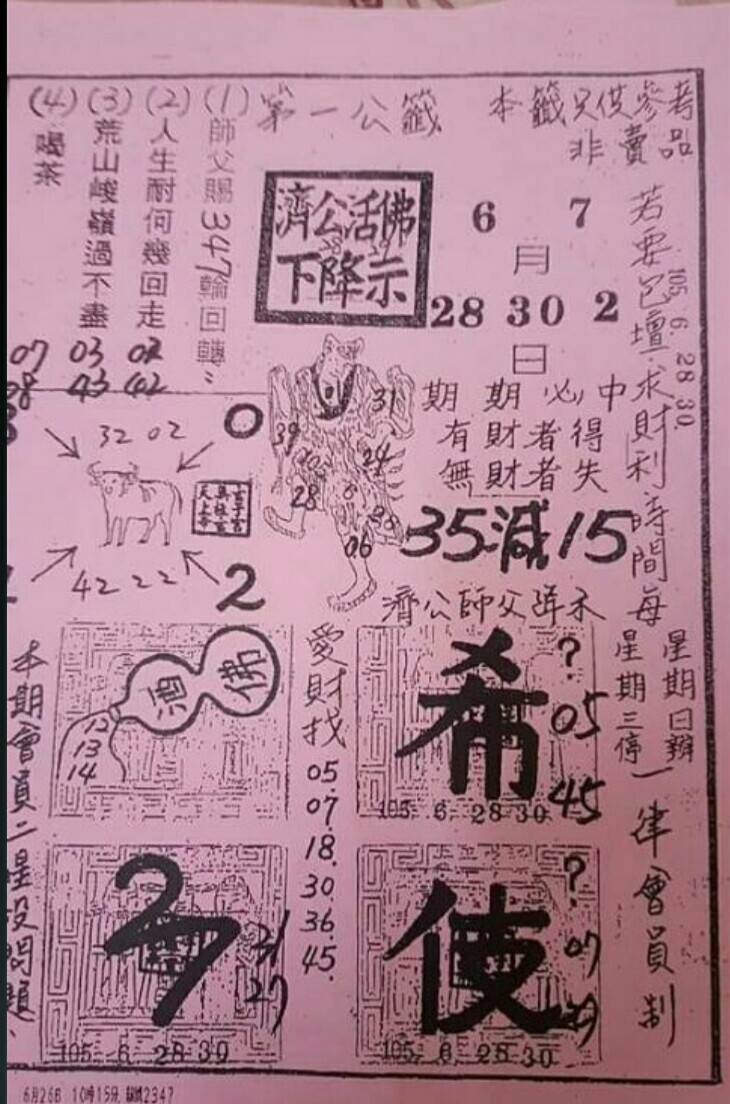 本籤只供參考
非賣品
第一公籤
(1)師父賜347輪回轉
(2)人生耐何幾回走
(3)荒山峻嶺過不盡
(4)喝茶
07 03 02
08 43 42
濟公活佛
下降示
6 7
月
28 30 2
日
若要包壇求財利時間每
105 6. 28 30.
星期日辦
星期三停
一律會員制
期期必中
有財者得
無財者失
35減15
濟公師父詳示
31
39
24
28
06
32 02
0
42 22
2
玄子宮
天上帝
佛
酒
12
13
14
愛財找
05.
07.
18.
30.
36.
45.
希
?
05
45
105 6 28 30
使
?
07
105 6 28 30
31
27
105 6 28 30
本期會員二星沒問題
6月26日 10時15分